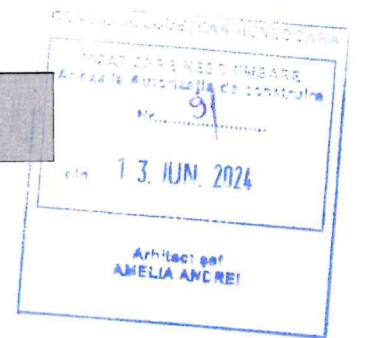 CONSILIUL JUDEȚEAN HUNEDOARA
VIZAT SPRE NESCHIMBARE
Anexa la Autorizația de construire
Nr. 91
din 13. IUN. 2024
Arhitect șef
AMELIA ANDREI